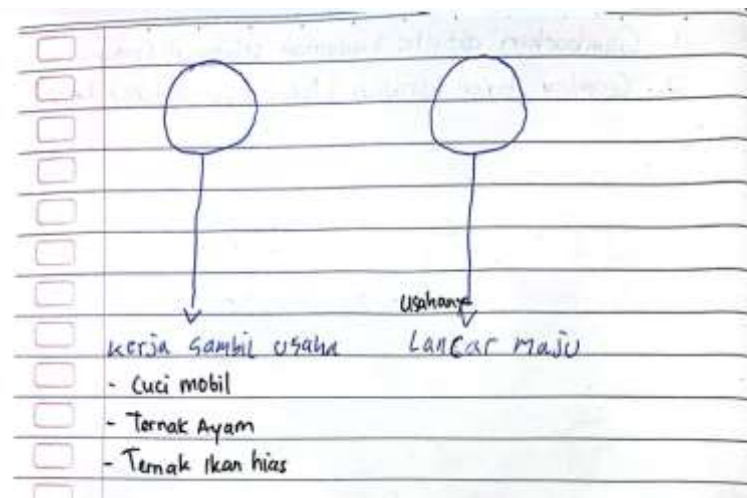 Usahanya
Kerja Sambil Usaha
Lancar Maju
- Cuci mobil
- Ternak Ayam
- Ternak Ikan hias